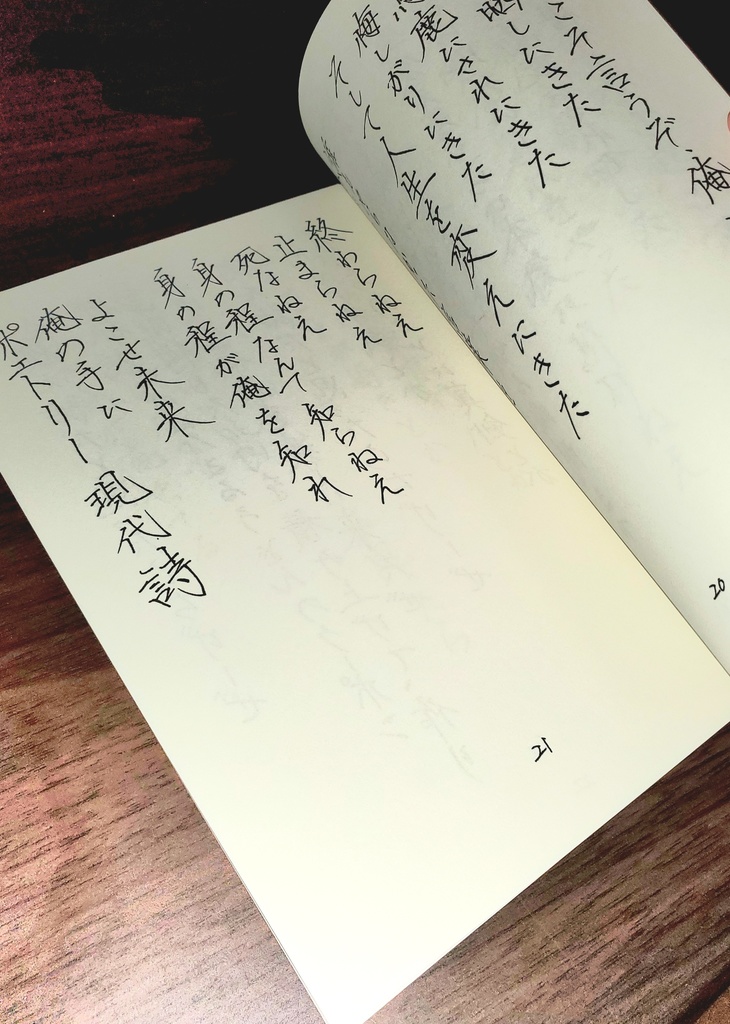 こそ言うぞ、俺
しにきた
鹿にされにきた
悔しがりにきた
そして人生を変えにきた
20
終わらねえ
止まらねえ
死なねえ
身の程なんて知らねえ
身の程が俺を知れ
よこせ未来
俺の手に
ポエトリー 現代詩
21